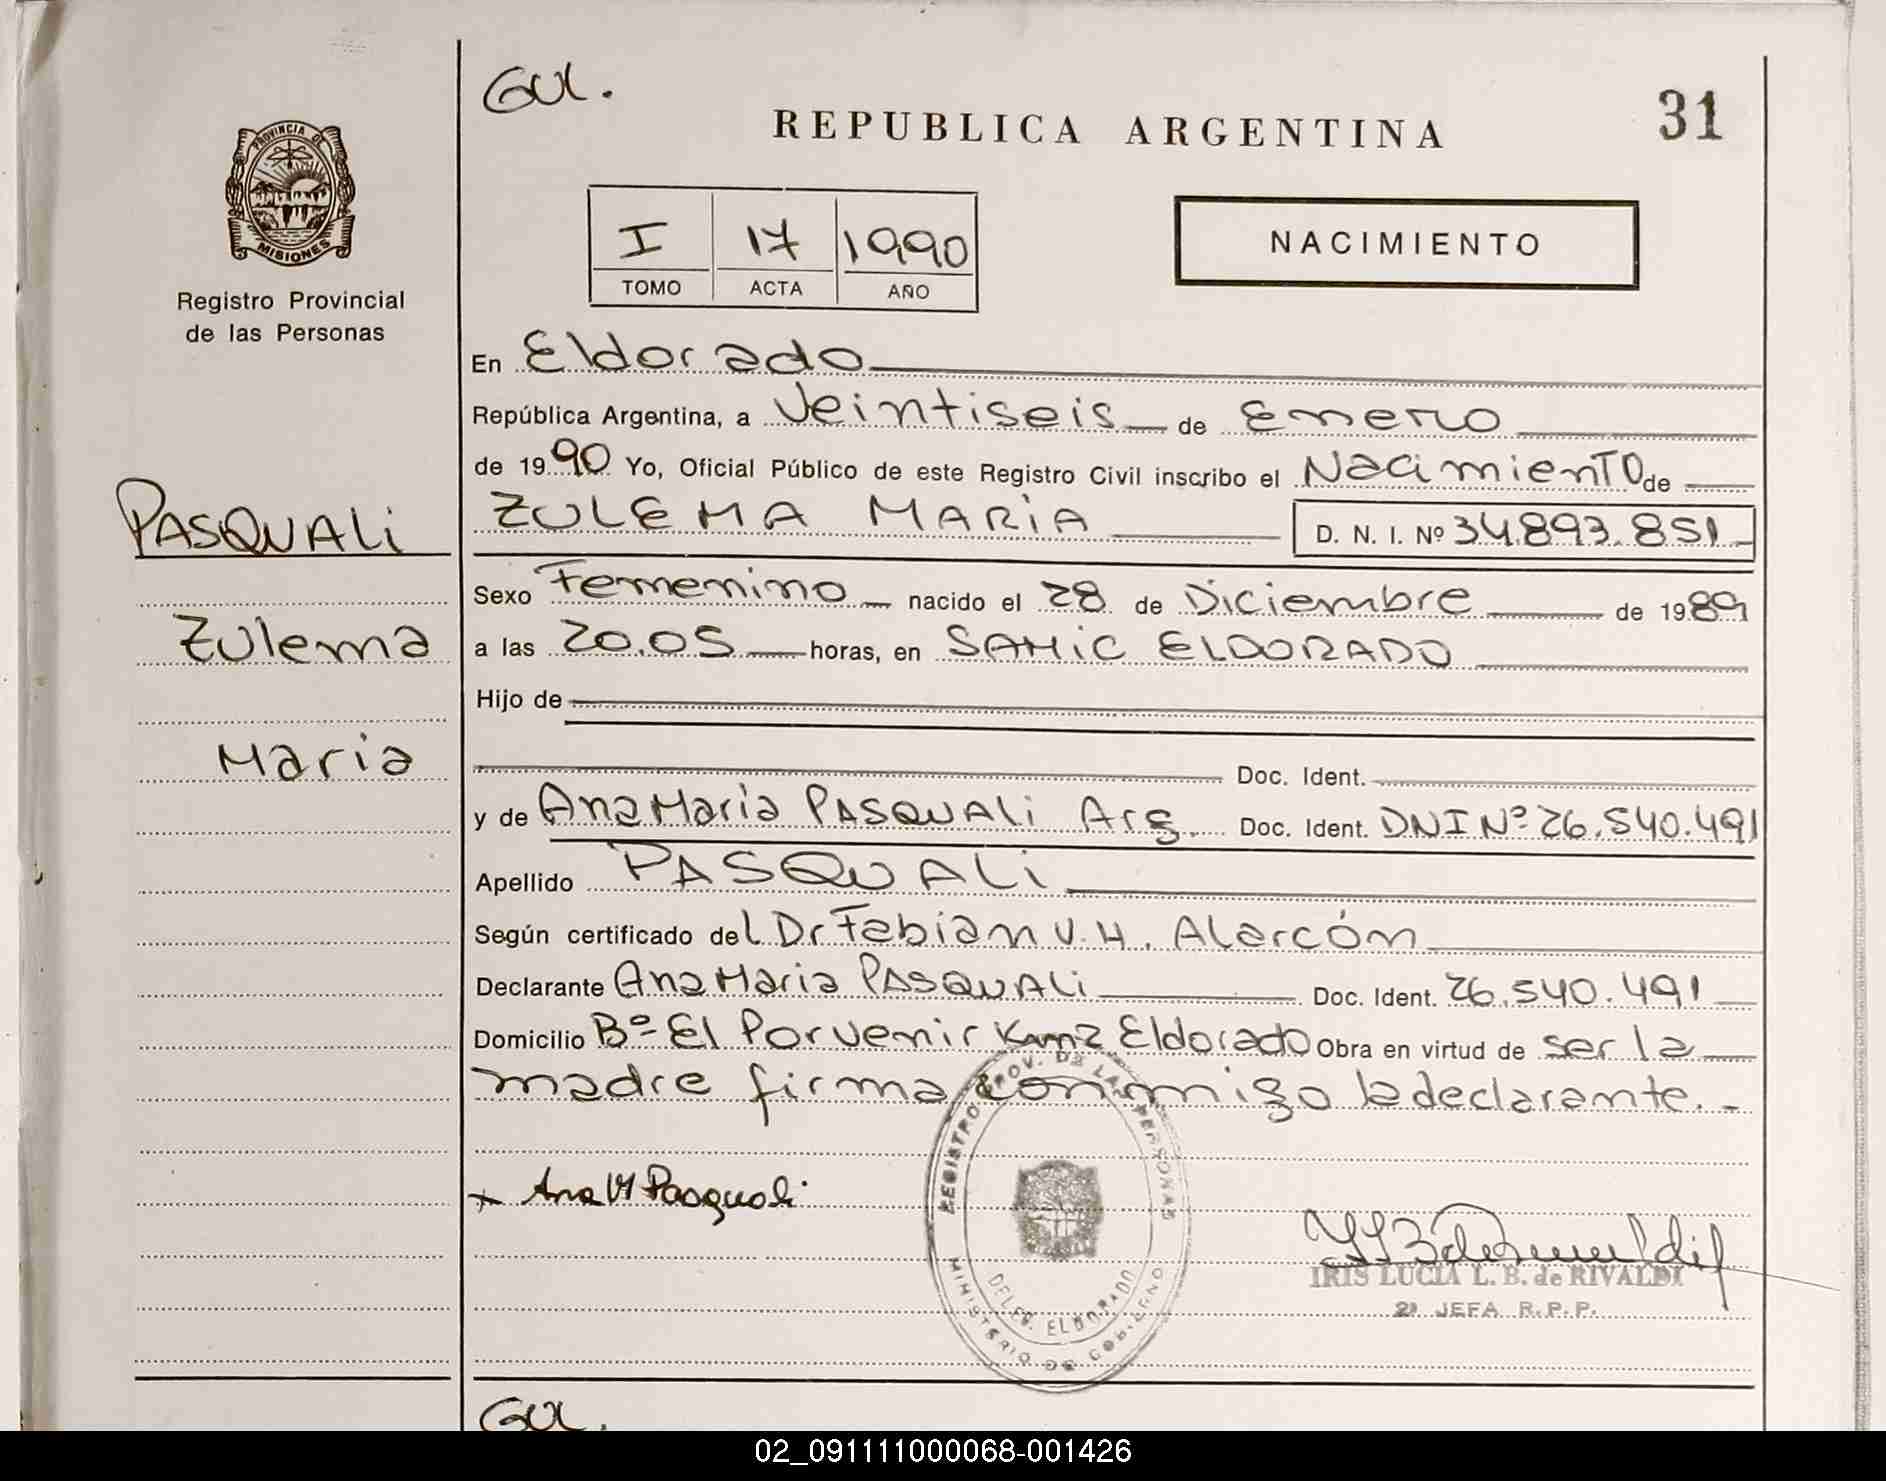 GUL.
REPUBLICA ARGENTINA
31
PROVINCIA DE
MISIONES
Registro Provincial
de las Personas
I 17 1990
TOMO ACTA AÑO
NACIMIENTO
En Eldorado
República Argentina, a Veintiseis de Enero
de 1990 Yo, Oficial Público de este Registro Civil inscribo el Nacimiento de
PASQUALi
ZULEMA MARiA D. N. I. Nº 34.893.851
Sexo Femenino nacido el 28 de Diciembre de 1989
Zulema
a las 20.05 horas, en SAMiC ELDORADO
Hijo de
Maria
Doc. Ident.
y de Ana Maria PASQUALi Arg. Doc. Ident. DNI Nº 26.540.491
Apellido PASQUALi
Según certificado del Dr Fabian V.H. Alarcón
Declarante Ana Maria PASQUALi Doc. Ident. 26.540.491
Domicilio Bº El Porvenir Km 2 Eldorado Obra en virtud de ser la
madre firma conmigo la declarante.-
Ana M Pasquali
REGISTRO PROV. DE LAS PERSONAS
DELEG. ELDORADO
MINISTERIO DE GOBIERNO
IRIS LUCIA L. B. de RIVALDI
2ª JEFA R.P.P.
GUL.
02_091111000068-001426